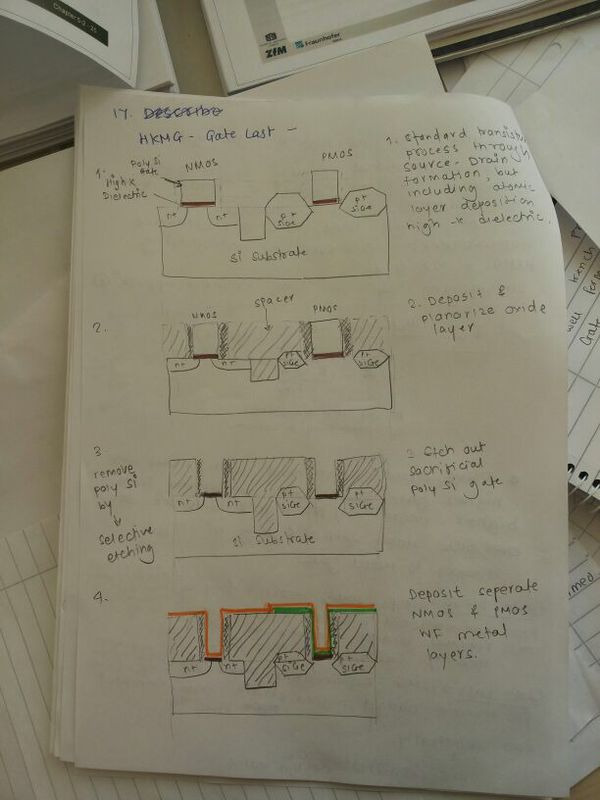 Chapter 5.2 - 25
ZfM
Fraunhofer
17. DESCRIBE
HKMG - Gate Last -
1.
Poly Si
Gate
High K
Dielectric
NMOS
PMOS
n+
n+
p+
SiGe
p+
SiGe
Si Substrate
1. Standard transistor
process through
source - Drain
formation, but
including atomic
layer deposition
high - k dielectric.
2.
NMOS
spacer
PMOS
n+
n+
p+
SiGe
p+
SiGe
2. Deposit &
planarize oxide
layer
3
remove
poly Si
by
selective
etching
n+
n+
p+
SiGe
p+
SiGe
Si Substrate
3 Etch out
sacrificial
poly Si gate
4.
n+
n+
p+
SiGe
p+
SiGe
Deposit seperate
NMOS & PMOS
WF metal
layers.
trench
well
Gate